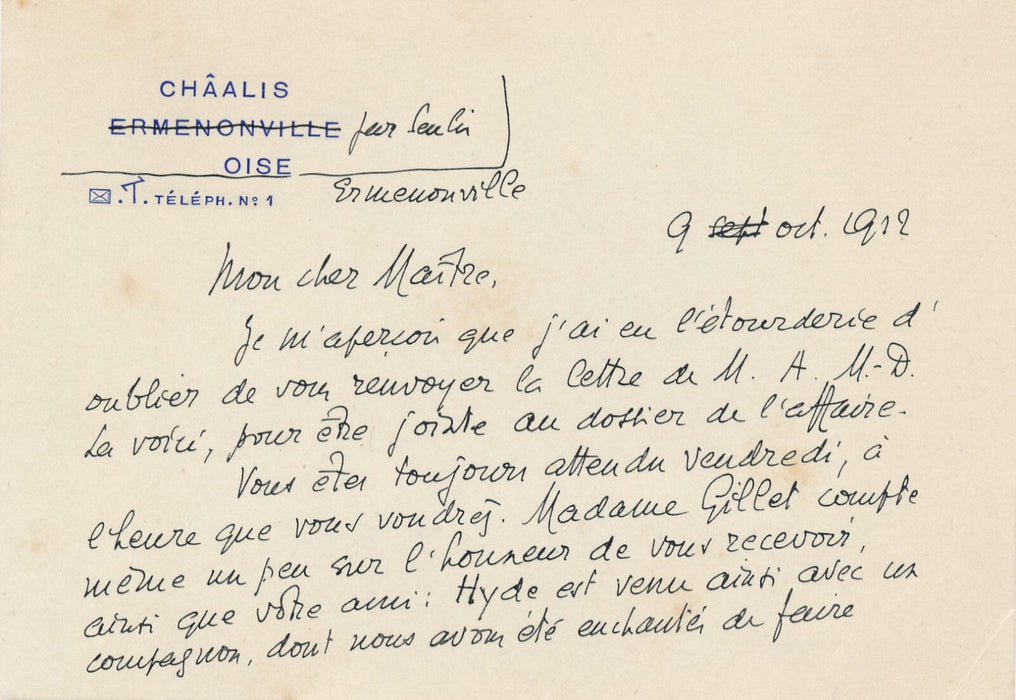 CHÂALIS
ERMENONVILLE par Senlis
OISE
T. TÉLÉPH. Nº 1 Ermenonville
9 sept oct. 1912
Mon cher Maître,
Je m'aperçois que j'ai eu l'étourderie d'
oublier de vous renvoyer la lettre de M. A. M.-D.
La voici, pour être jointe au dossier de l'affaire.
Vous êtes toujours attendu vendredi, à
l'heure que vous voudrez. Madame Gillet compte
même un peu sur l'honneur de vous recevoir,
ainsi que votre ami : Hyde est venu ainsi avec un
compagnon, dont nous avons été enchantés de faire